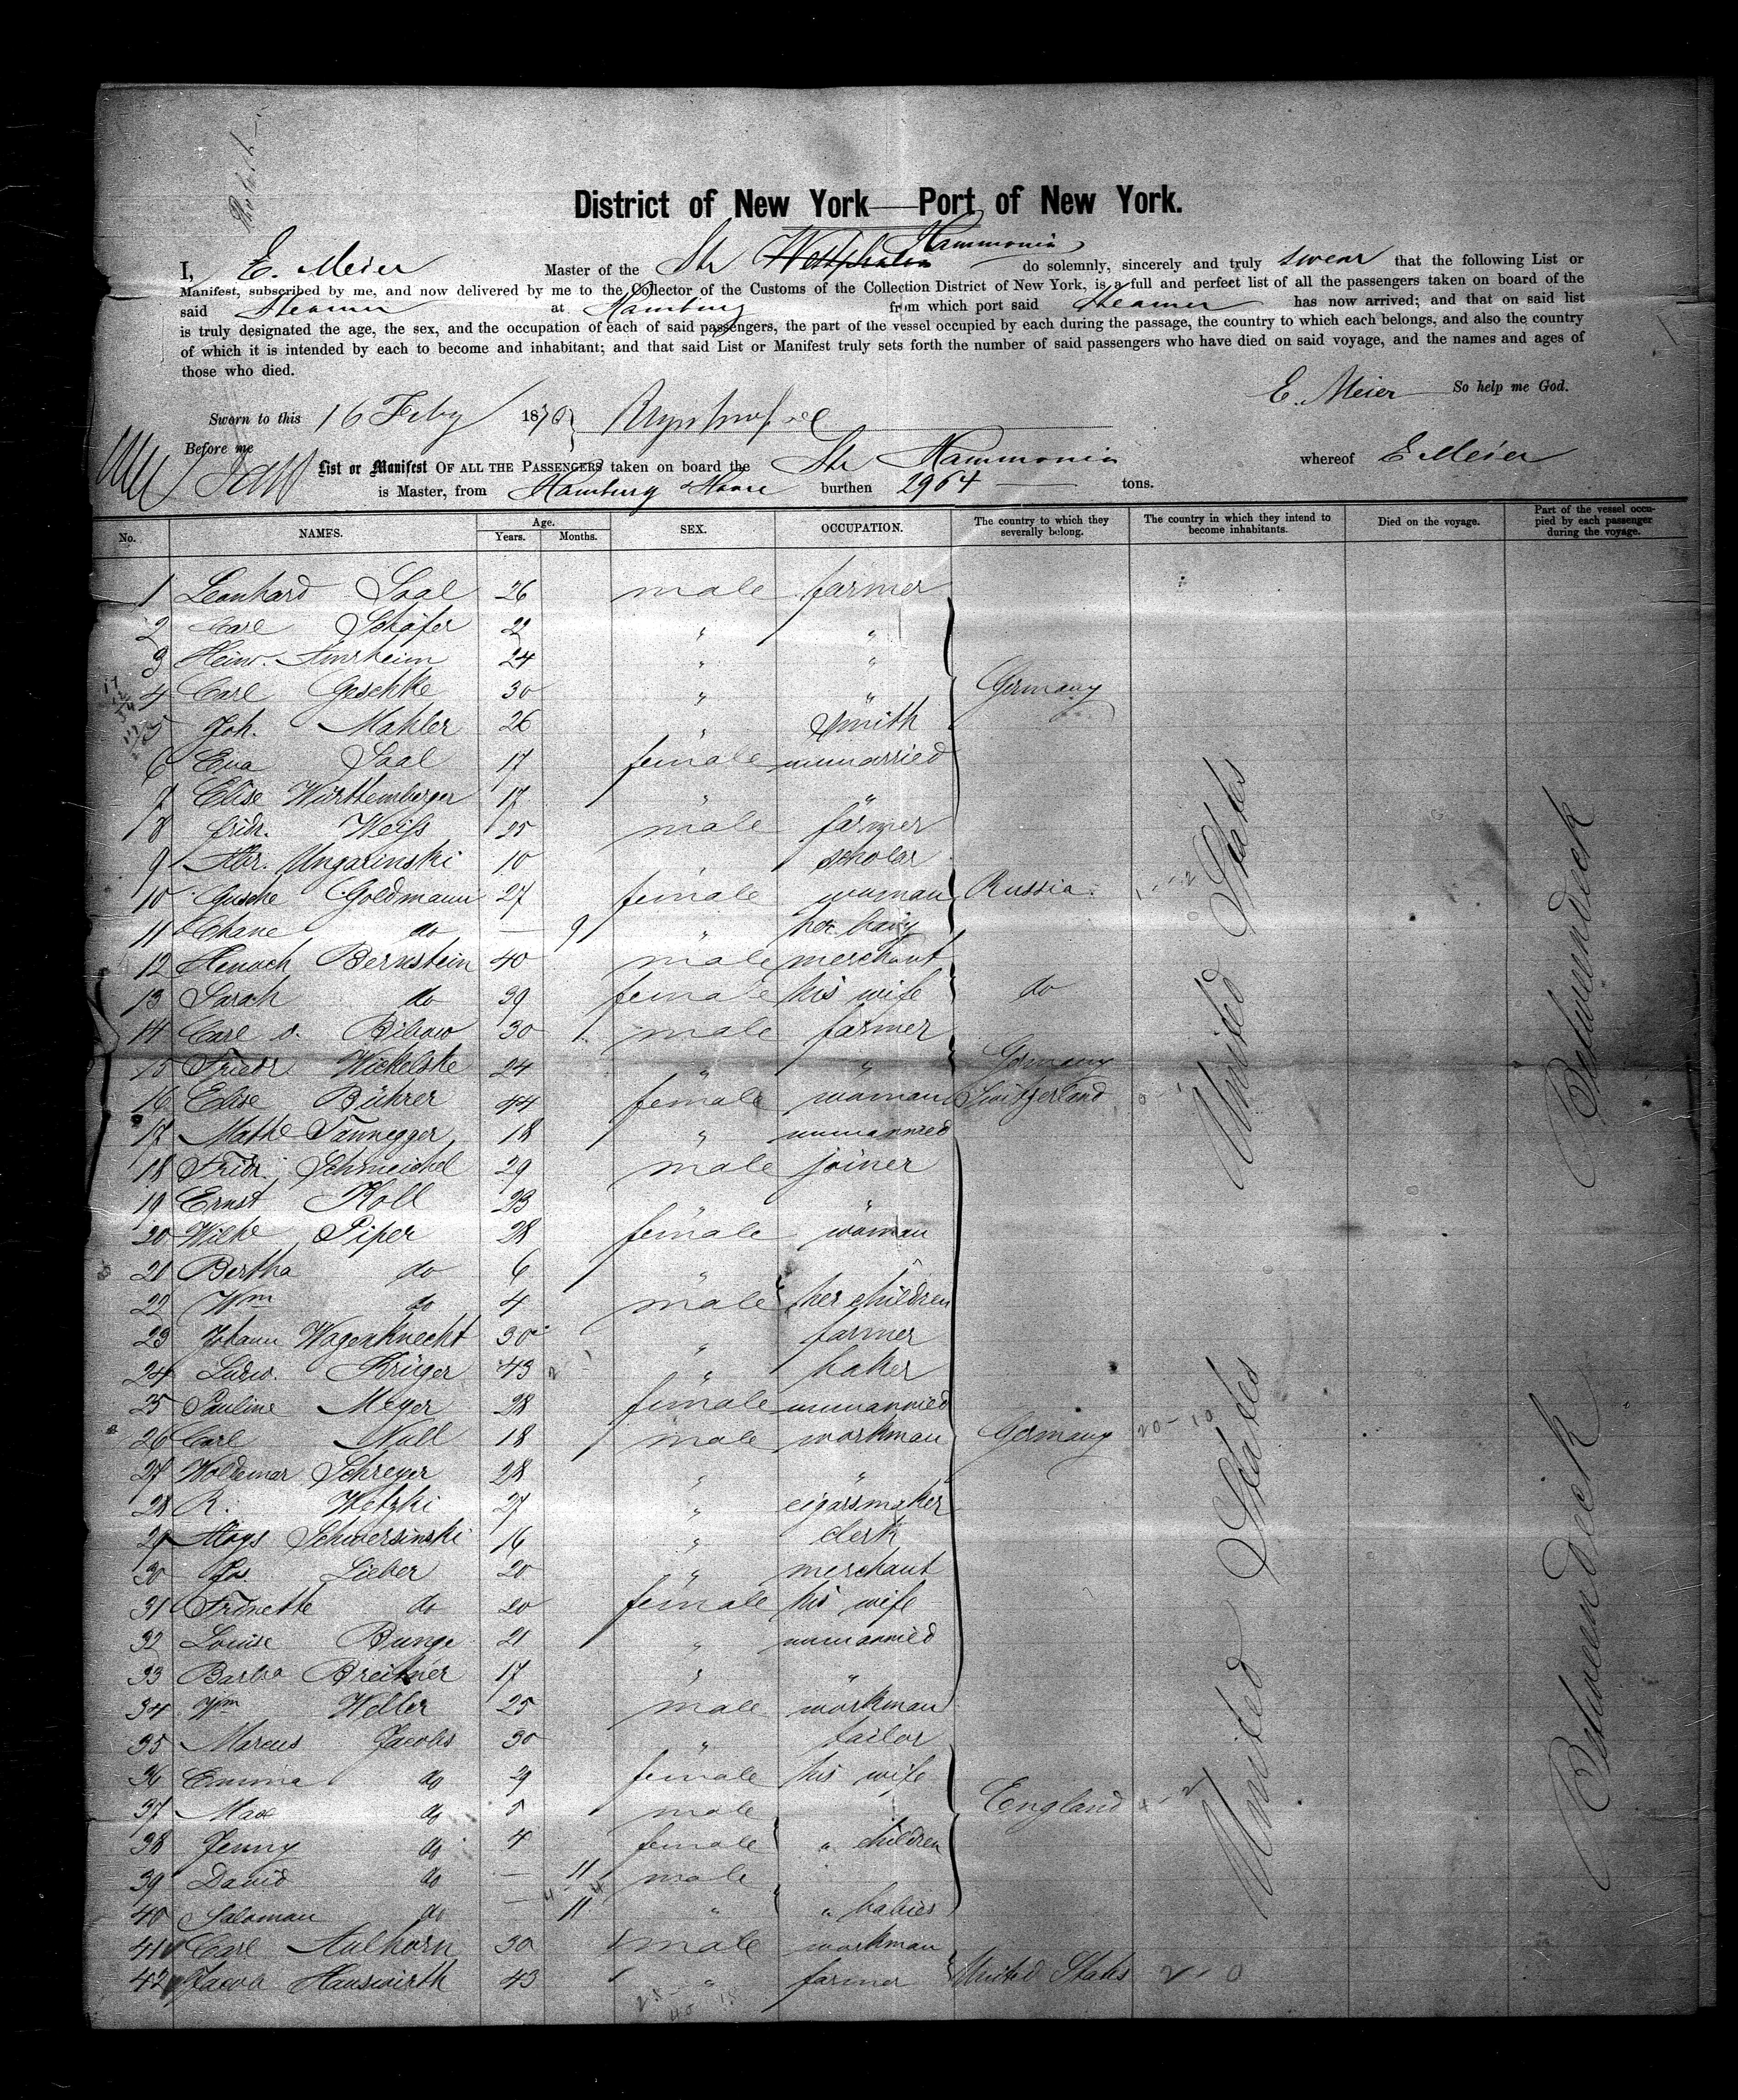 District of New York—Port of New York.
Hammonia
I, E. Meier Master of the Str Westphalia do solemnly, sincerely and truly swear that the following List or
Manifest, subscribed by me, and now delivered by me to the Collector of the Customs of the Collection District of New York, is a full and perfect list of all the passengers taken on board of the
said Steamer at Hamburg from which port said Steamer has now arrived; and that on said list
is truly designated the age, the sex, and the occupation of each of said passengers, the part of the vessel occupied by each during the passage, the country to which each belongs, and also the country
of which it is intended by each to become and inhabitant; and that said List or Manifest truly sets forth the number of said passengers who have died on said voyage, and the names and ages of
those who died.
E. Meier So help me God.
Sworn to this 16 Feby 1870
Before me
List or Manifest OF ALL THE PASSENGERS taken on board the Str Hammonia whereof E Meier
is Master, from Hamburg & Havre burthen 2964 — tons.
No. NAMES. Age. Years. Months. SEX. OCCUPATION. The country to which they severally belong. The country in which they intend to become inhabitants. Died on the voyage. Part of the vessel occupied by each passenger during the voyage.
1 Leonhard Saal 26 male farmer
2 Carl Schäfer 22 " "
3 Heinr. Amrheim 24 " "
4 Carl Geschke 30 " " Germany
5 Joh. Mahler 26 " Smith
6 Eva Saal 17 female unmarried
7 Elise Württemberger 17 " "
8 Fridr. Weiss 25 male farmer
9 Abr. Ungarinski 10 scholar
10 Gusche Goldmann 27 female woman Russia
11 Chane do — 9 " her baby
12 Henoch Bernstein 40 male merchant
13 Sarah do 39 female his wife do
14 Carl v. Bülow 30 male farmer
15 Friedr Wickelske 24 " " Germany
16 Elise Bührer 44 female woman Switzerland
17 Mathe Tannegger 18 " unmarried
18 Fridr. Schmeichel 29 male joiner
19 Ernst Koll 23 " "
20 Wilhe Piper 28 female woman
21 Bertha do 6 "
22 Wm do 4 male her children
23 Johann Wagenknecht 30 " farmer
24 Ludw. Krüger 43 " baker
25 Pauline Meyer 28 female unmarried
26 Carl Null 18 male workman Germany 20-10
27 Woldemar Schreyer 28 " "
28 R. Wetzki 27 " cigarsmaker
29 Aloys Schwersinski 16 " clerk
30 Jos Lieber 20 " merchant
31 Trinette do 20 female his wife
32 Louise Bunge 21 " unmarried
33 Barba Breitner 17 " "
34 Wm Weller 25 male workman
35 Marcus Jacobs 30 " tailor
36 Emma do 29 female his wife
37 Max do 5 male England 4-2
38 Jenny do 4 female " children
39 David do — 11 male
40 Salomon do — 11 " " babies
41 Carl Aulhorn 30 male workman
42 Jacob Hauswirth 43 " farmer United States 2-0
United States
United States
Betweendeck
Betweendeck